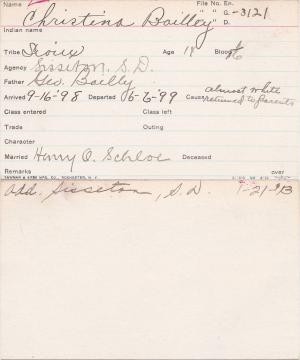 Name File No. En.
Christina Bailley "G-3121
" D.
Indian name
Tribe Sioux Age 18 Blood
Agency Sisseton, S.D.
Father Geo. Bailly
Arrived 9-16-'98 Departed 6-6-'99 Cause almost white
returned to Parents
Class entered Class left
Trade Outing
Character
Married Henry O. Deceased
Remarks over
Add. Sisseton, S.D. 1-21-'13